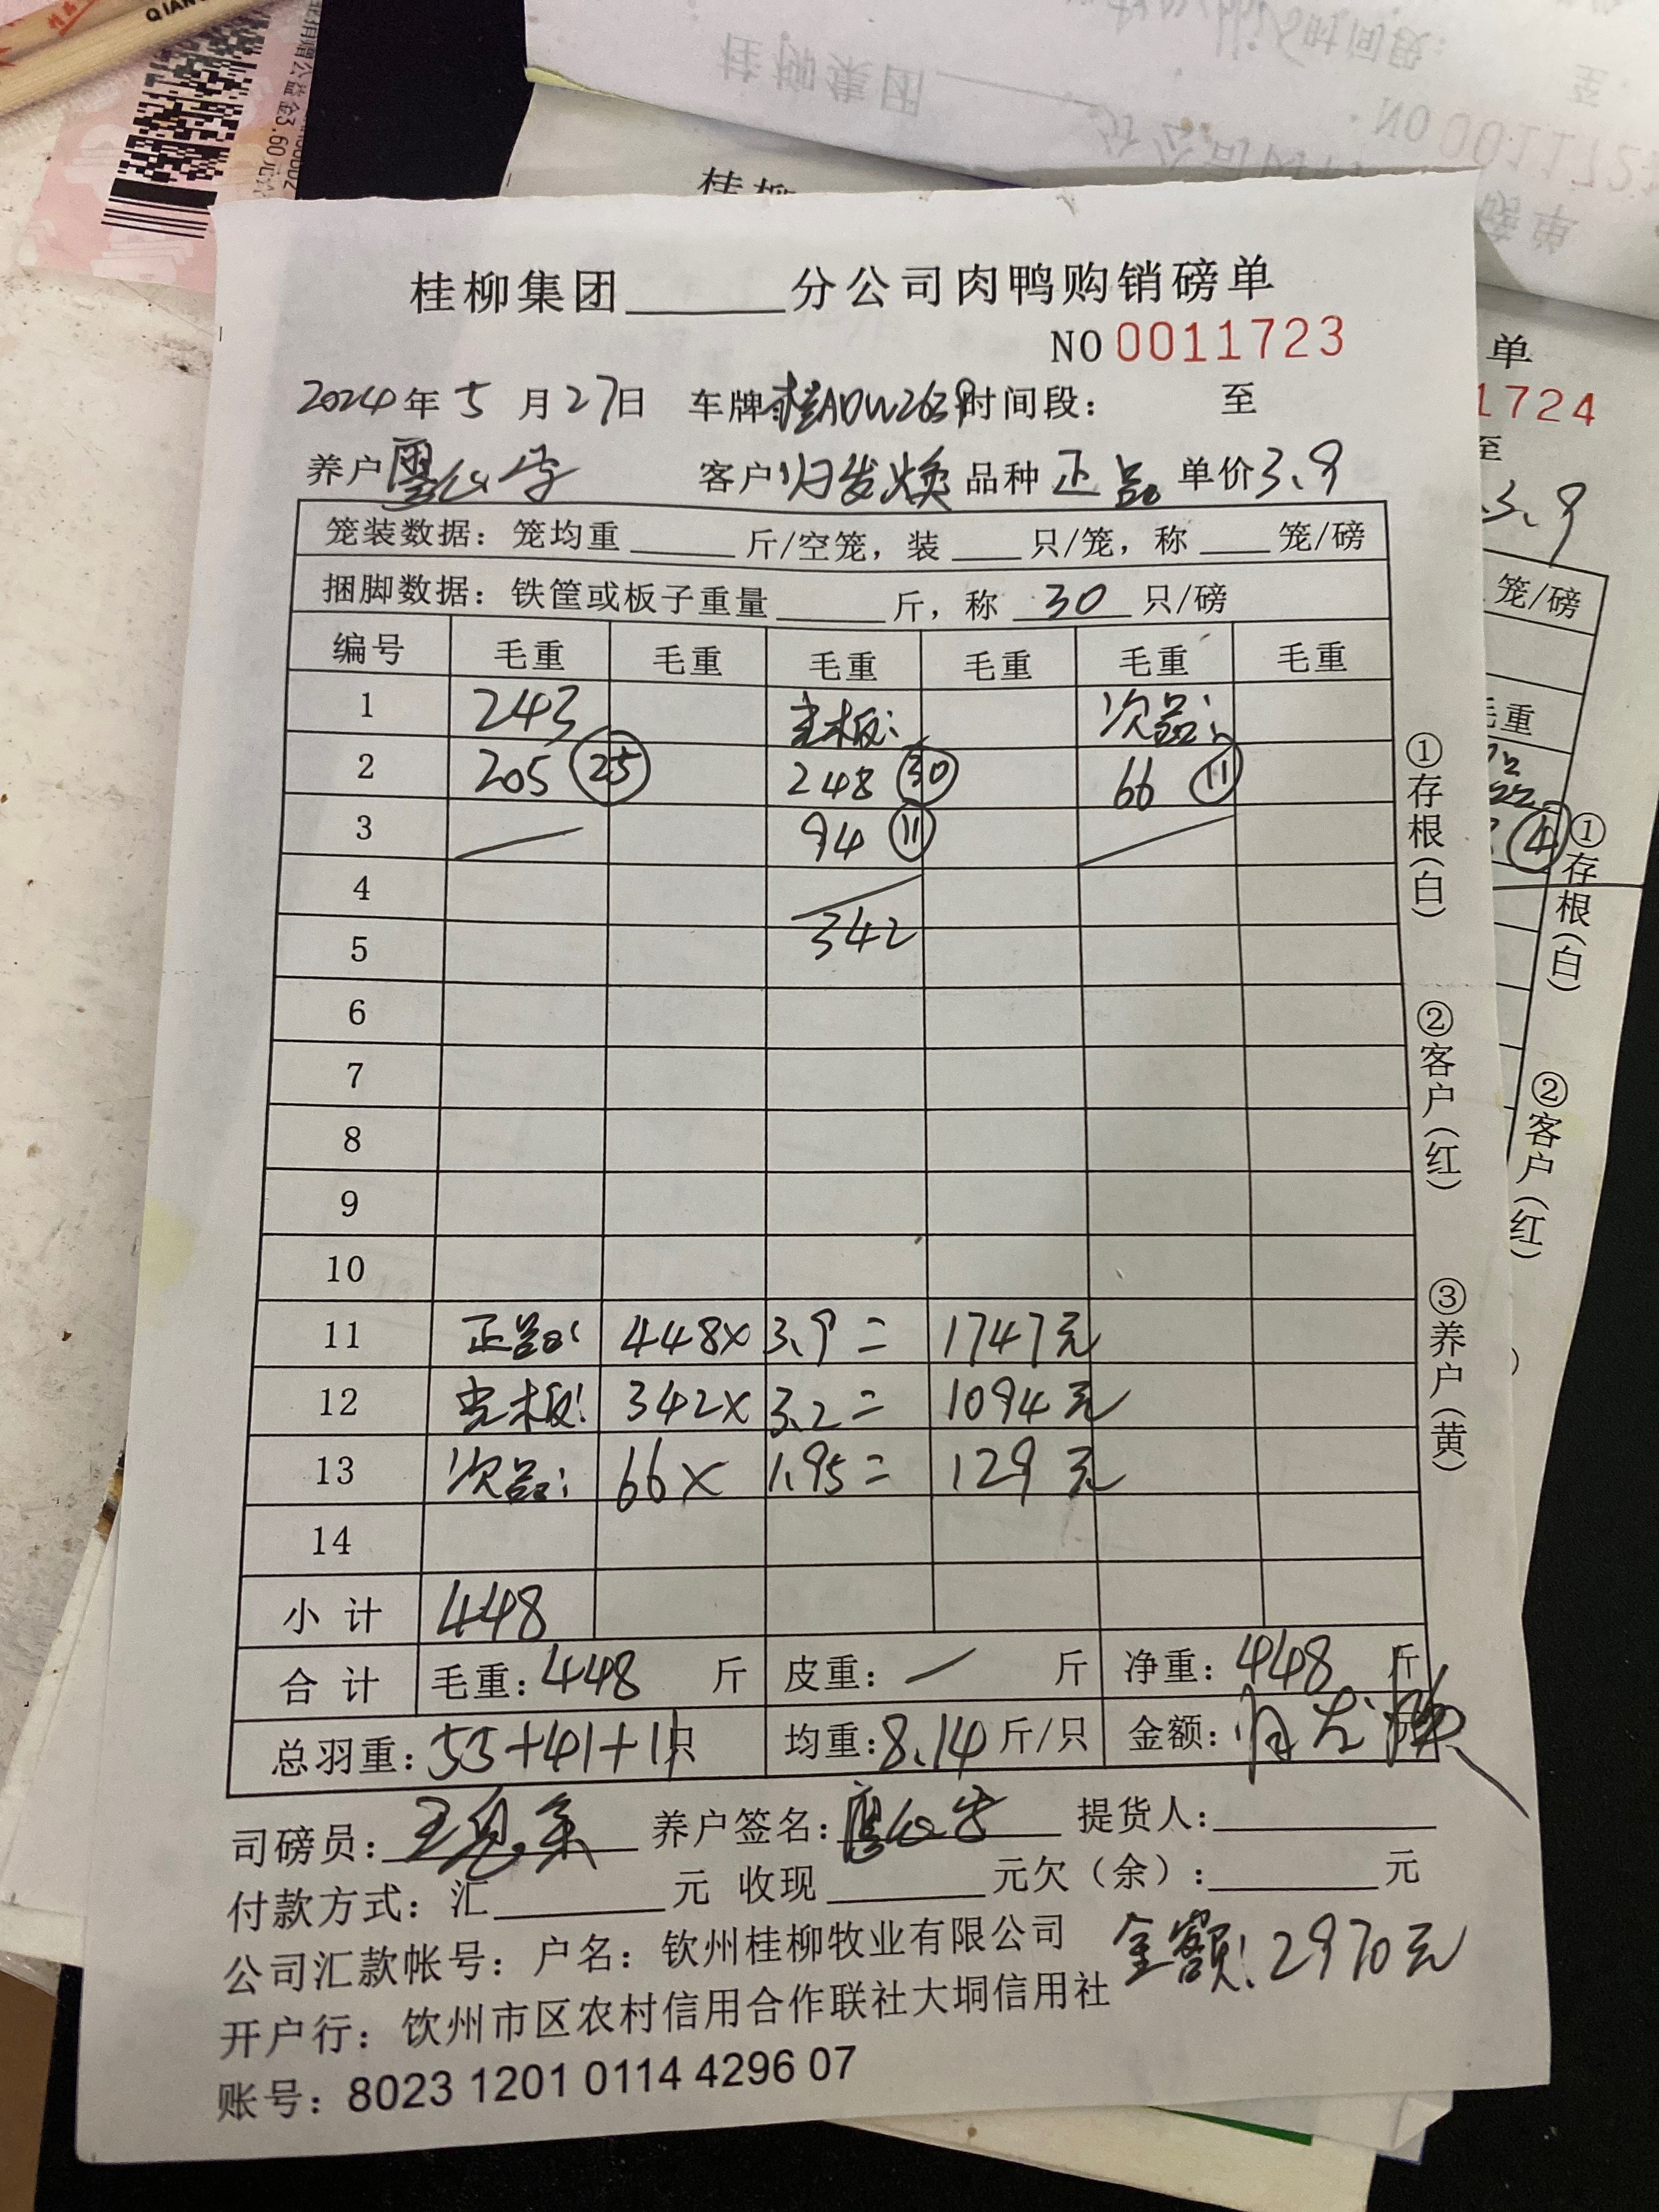 桂柳集团______分公司肉鸭购销磅单
NO 0011723
2024年5月27日 车牌:桂ADW2639时间段: 至
养户 客户归发焕 品种 正品 单价3.9
笼装数据: 笼均重______斤/空笼, 装____只/笼, 称____笼/磅
捆脚数据: 铁筐或板子重量______斤, 称 30 只/磅
编号 毛重 毛重 毛重 毛重 毛重 毛重
1 243 板: 次品:
2 205 25 248 30 66 11
3 94 11
4
5 342
6
7
8
9
10
11 正品: 448× 3.9= 1747元
12 板: 342× 3.2= 1094元
13 次品: 66× 1.95= 129元
14
小计 448
合计 毛重:448 斤 皮重: — 斤 净重:448 斤
总羽重:55+41+11只 均重:8.14斤/只 金额:
司磅员: 养户签名: 提货人:
付款方式: 汇______元 收现______元欠(余):______元
公司汇款帐号: 户名: 钦州桂柳牧业有限公司
金额:2970元
开户行: 钦州市区农村信用合作联社大垌信用社
账号: 8023 1201 0114 4296 07
①存根(白) ②客户(红) ③养户(黄)
单
1724
至
3.9
笼/磅
毛重
4
①存根(白) ②客户(红)
桂柳集团
NO 0011